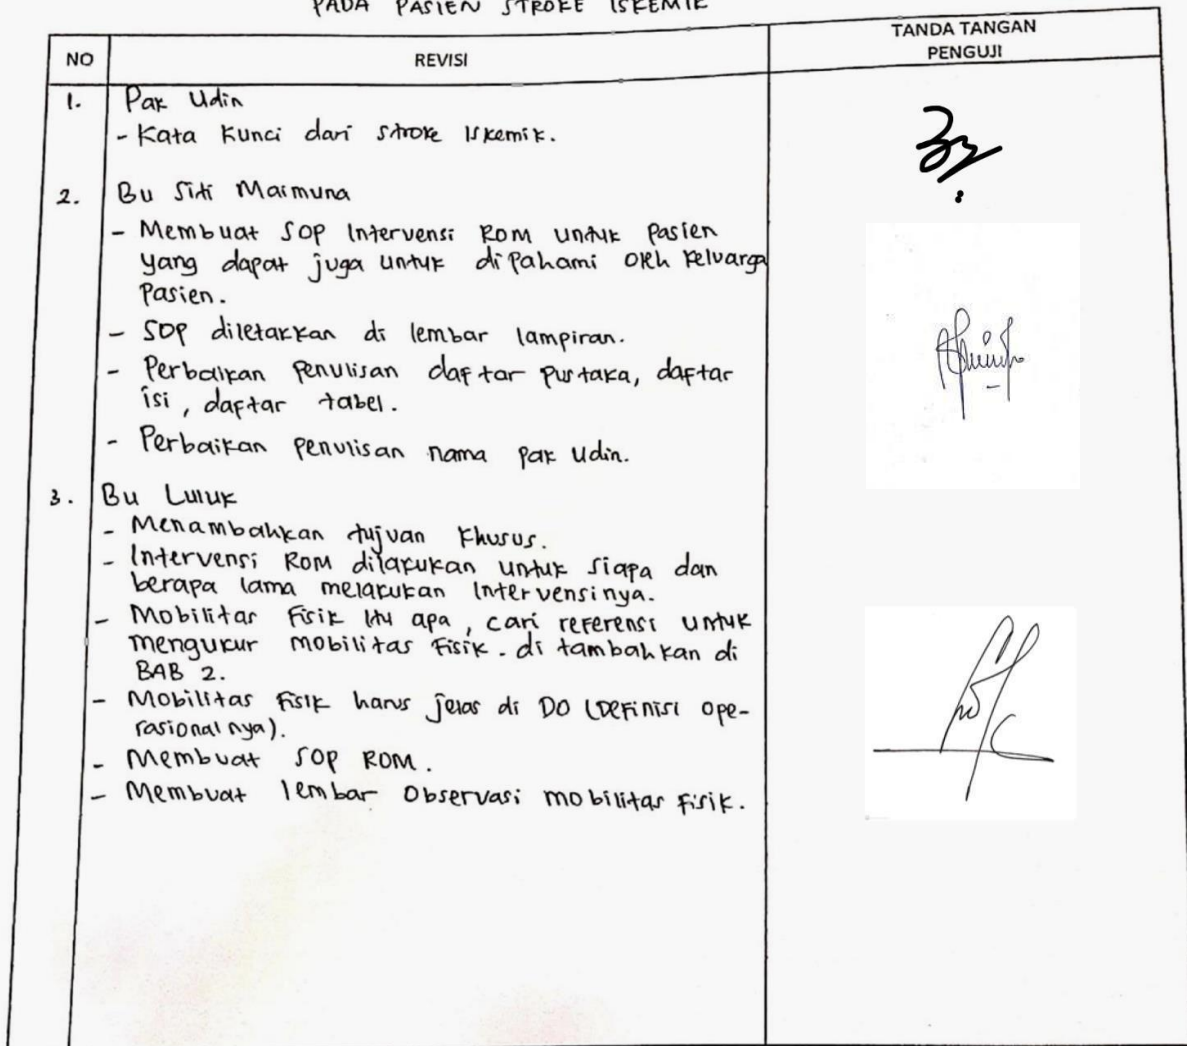 PADA PASIEN STROKE ISKEMIK
NO
REVISI
TANDA TANGAN
PENGUJI
1. Pak Udin
- Kata Kunci dari Stroke Iskemik.
2. Bu Siti Maimuna
- Membuat SOP Intervensi ROM untuk Pasien
yang dapat juga untuk di pahami oleh keluarga
Pasien.
- SOP diletakkan di lembar lampiran.
- Perbaikan penulisan daftar pustaka, daftar
isi, daftar tabel.
- Perbaikan penulisan nama pak Udin.
3. Bu Luluk
- Menambahkan tujuan khusus.
- Intervensi ROM dilakukan untuk siapa dan
berapa lama melakukan Intervensinya.
- Mobilitas Fisik itu apa, cari referensi untuk
mengukur mobilitas Fisik. di tambahkan di
BAB 2.
- Mobilitas fisik harus jelas di DO (Definisi ope-
rasional nya).
- Membuat SOP ROM.
- Membuat lembar Observasi mobilitas fisik.